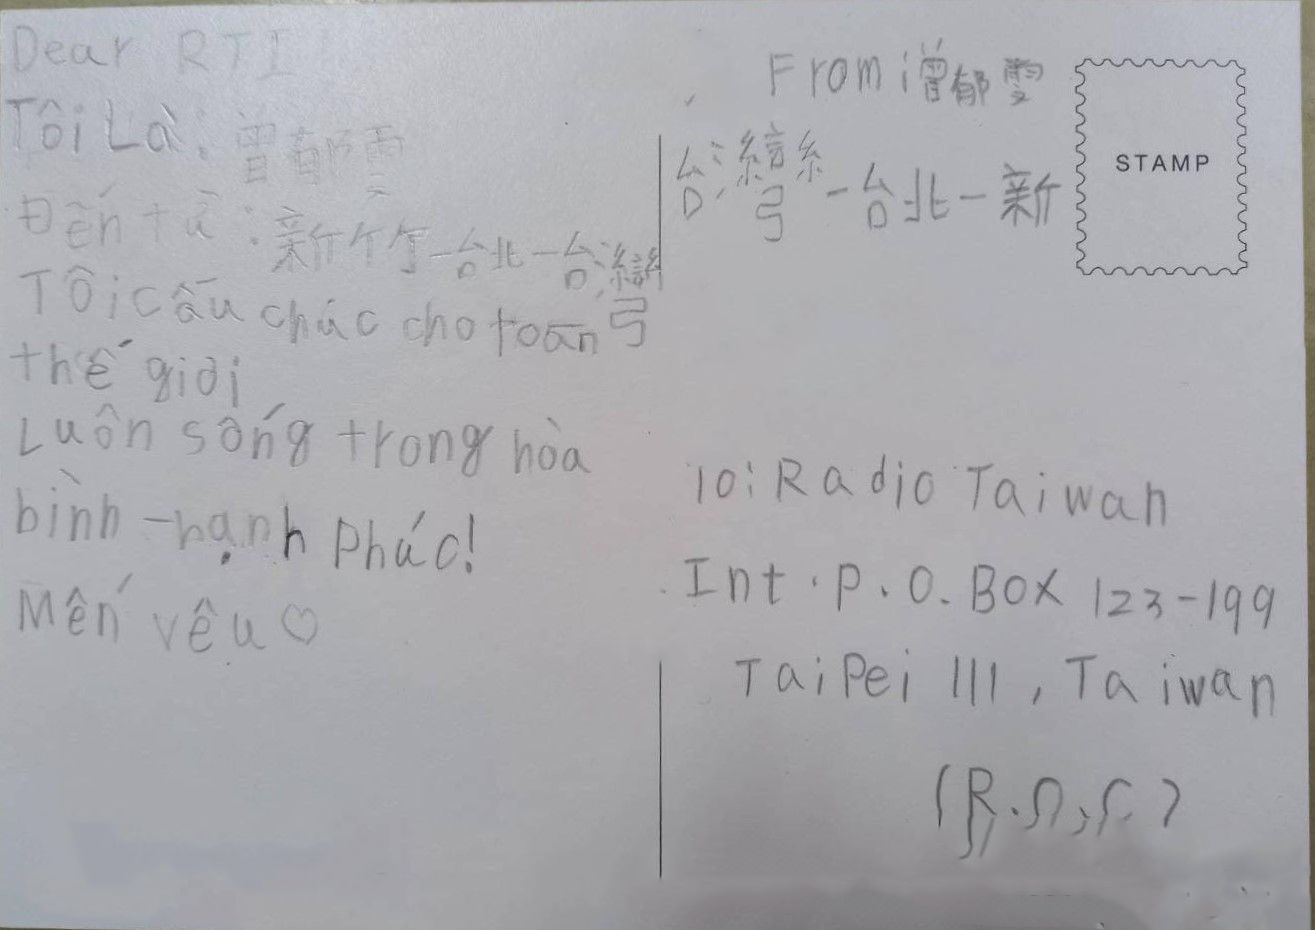 Dear RTI
Tôi Là: 曾郁雯
Đến từ: 新竹-台北-台灣
Tôi cầu chúc cho toàn
thế giới
Luôn sống trong hòa
bình - hạnh Phúc!
Mến yêu ♡
From: 曾郁雯
台灣-台北-新
STAMP
To: Radio Taiwan
Int. P.O. BOX 123-199
TaiPei 111, Taiwan
(R.O.C.)